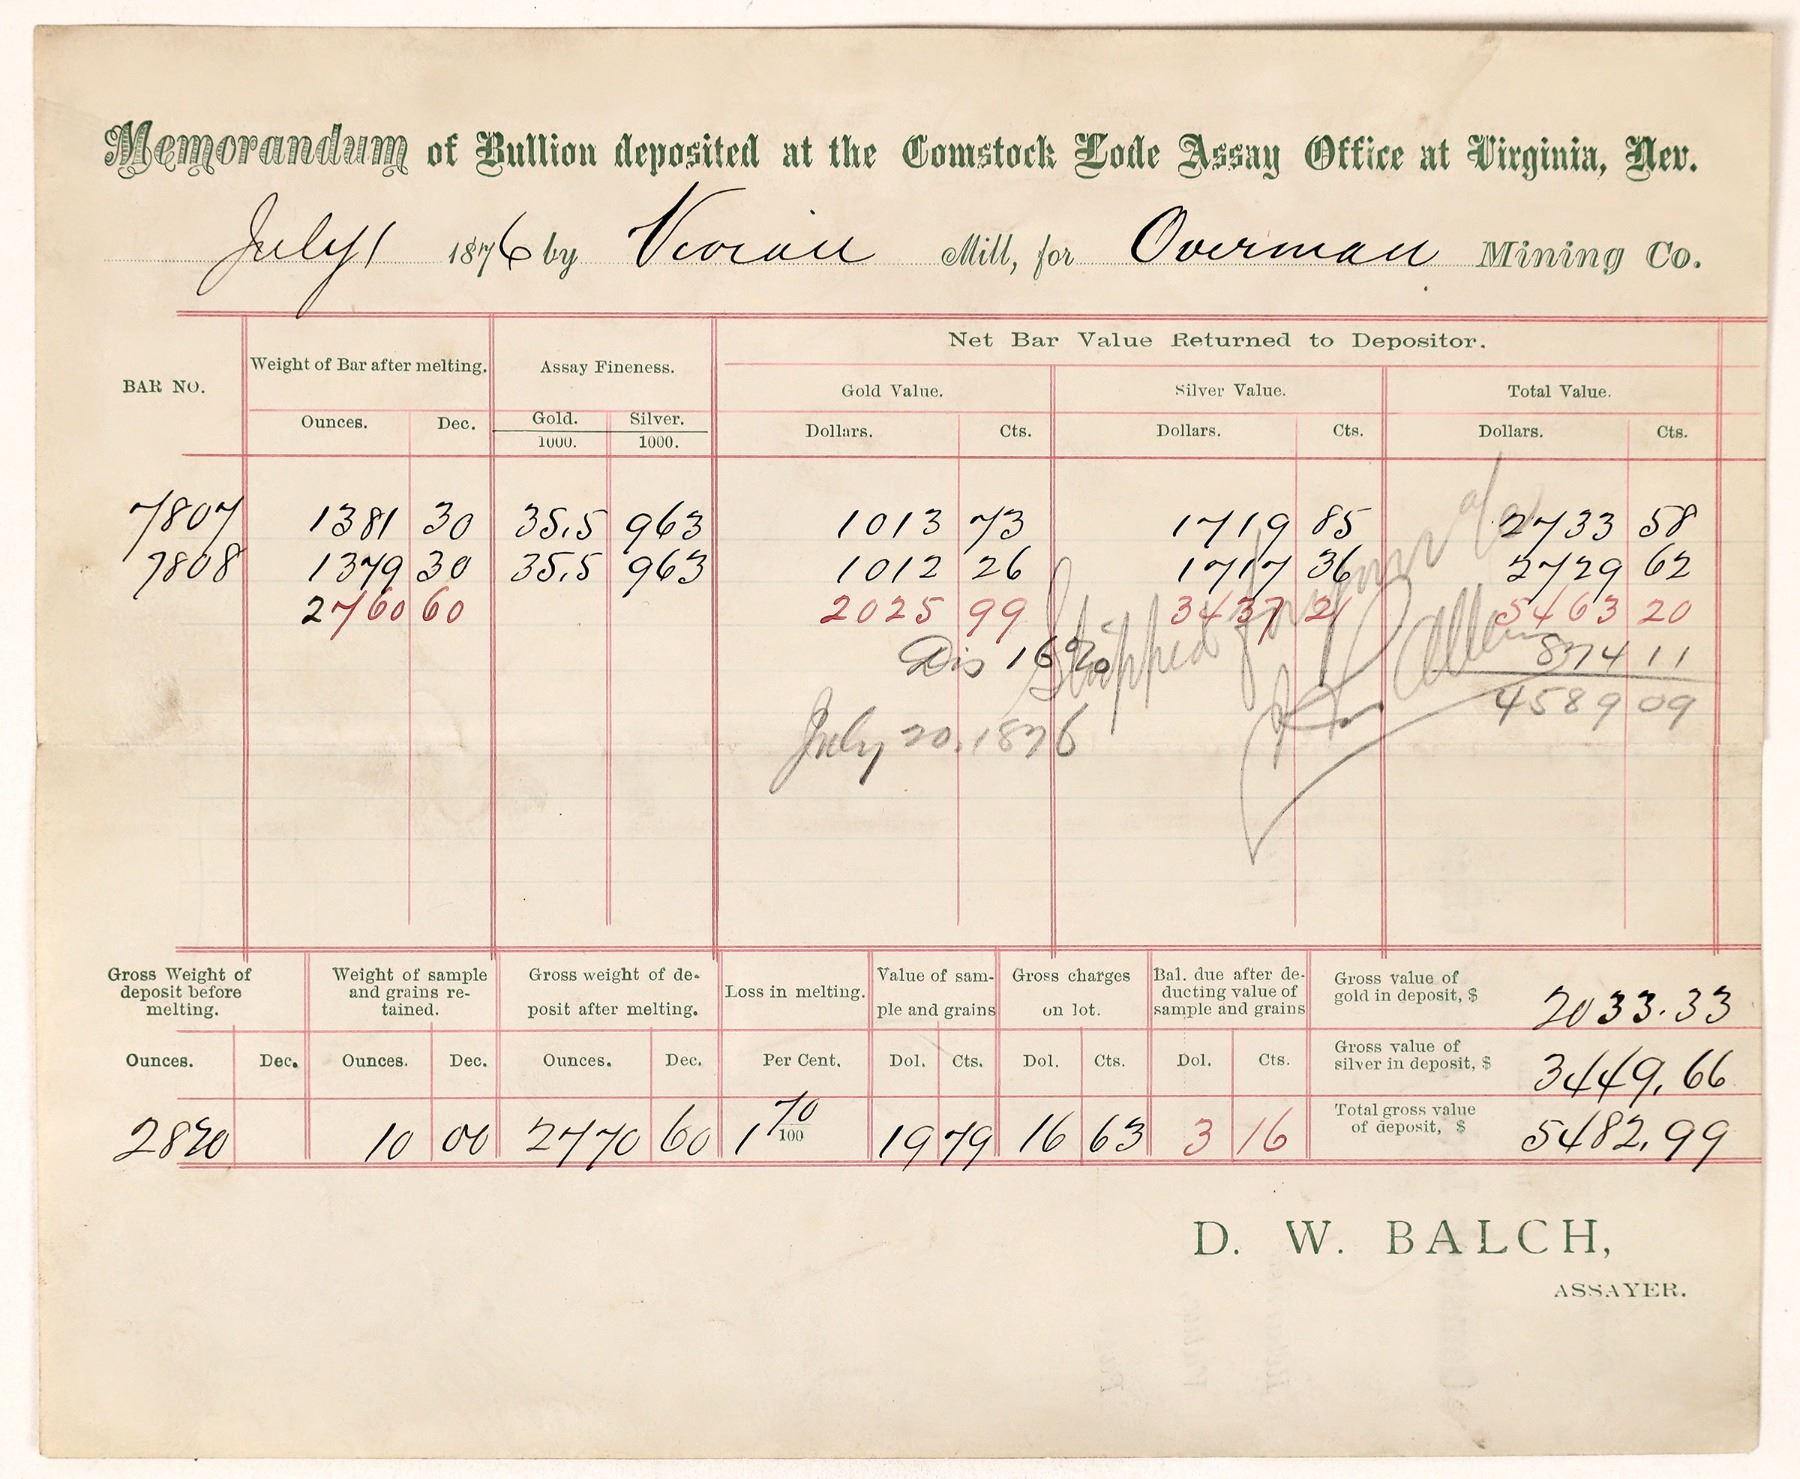 Memorandum of Bullion deposited at the Comstock Lode Assay Office at Virginia, Nev.
July 1 1876 by Vivian Mill, for Overman Mining Co.
Net Bar Value Returned to Depositor.
BAR NO. Weight of Bar after melting. Assay Fineness. Gold Value. Silver Value. Total Value.
Ounces. Dec. Gold. 1000. Silver. 1000. Dollars. Cts. Dollars. Cts. Dollars. Cts.
7807 1381 30 35.5 963 1013 73 1719 85 2733 58
7808 1379 30 35.5 963 1012 26 1717 36 2729 62
2760 60 2025 99 3437 21 5463 20
Dis 16% 874 11
4589 09
Shipped
July 20, 1876
Gross Weight of deposit before melting. Weight of sample and grains retained. Gross weight of deposit after melting. Loss in melting. Value of sample and grains Gross charges on lot. Bal. due after deducting value of sample and grains
Gross value of gold in deposit, $ 2033.33
Gross value of silver in deposit, $ 3449.66
Total gross value of deposit, $ 5482.99
Ounces. Dec. Ounces. Dec. Ounces. Dec. Per Cent. Dol. Cts. Dol. Cts. Dol. Cts.
2820 10 00 2770 60 1 70/100 19 79 16 63 3 16
D. W. BALCH,
ASSAYER.